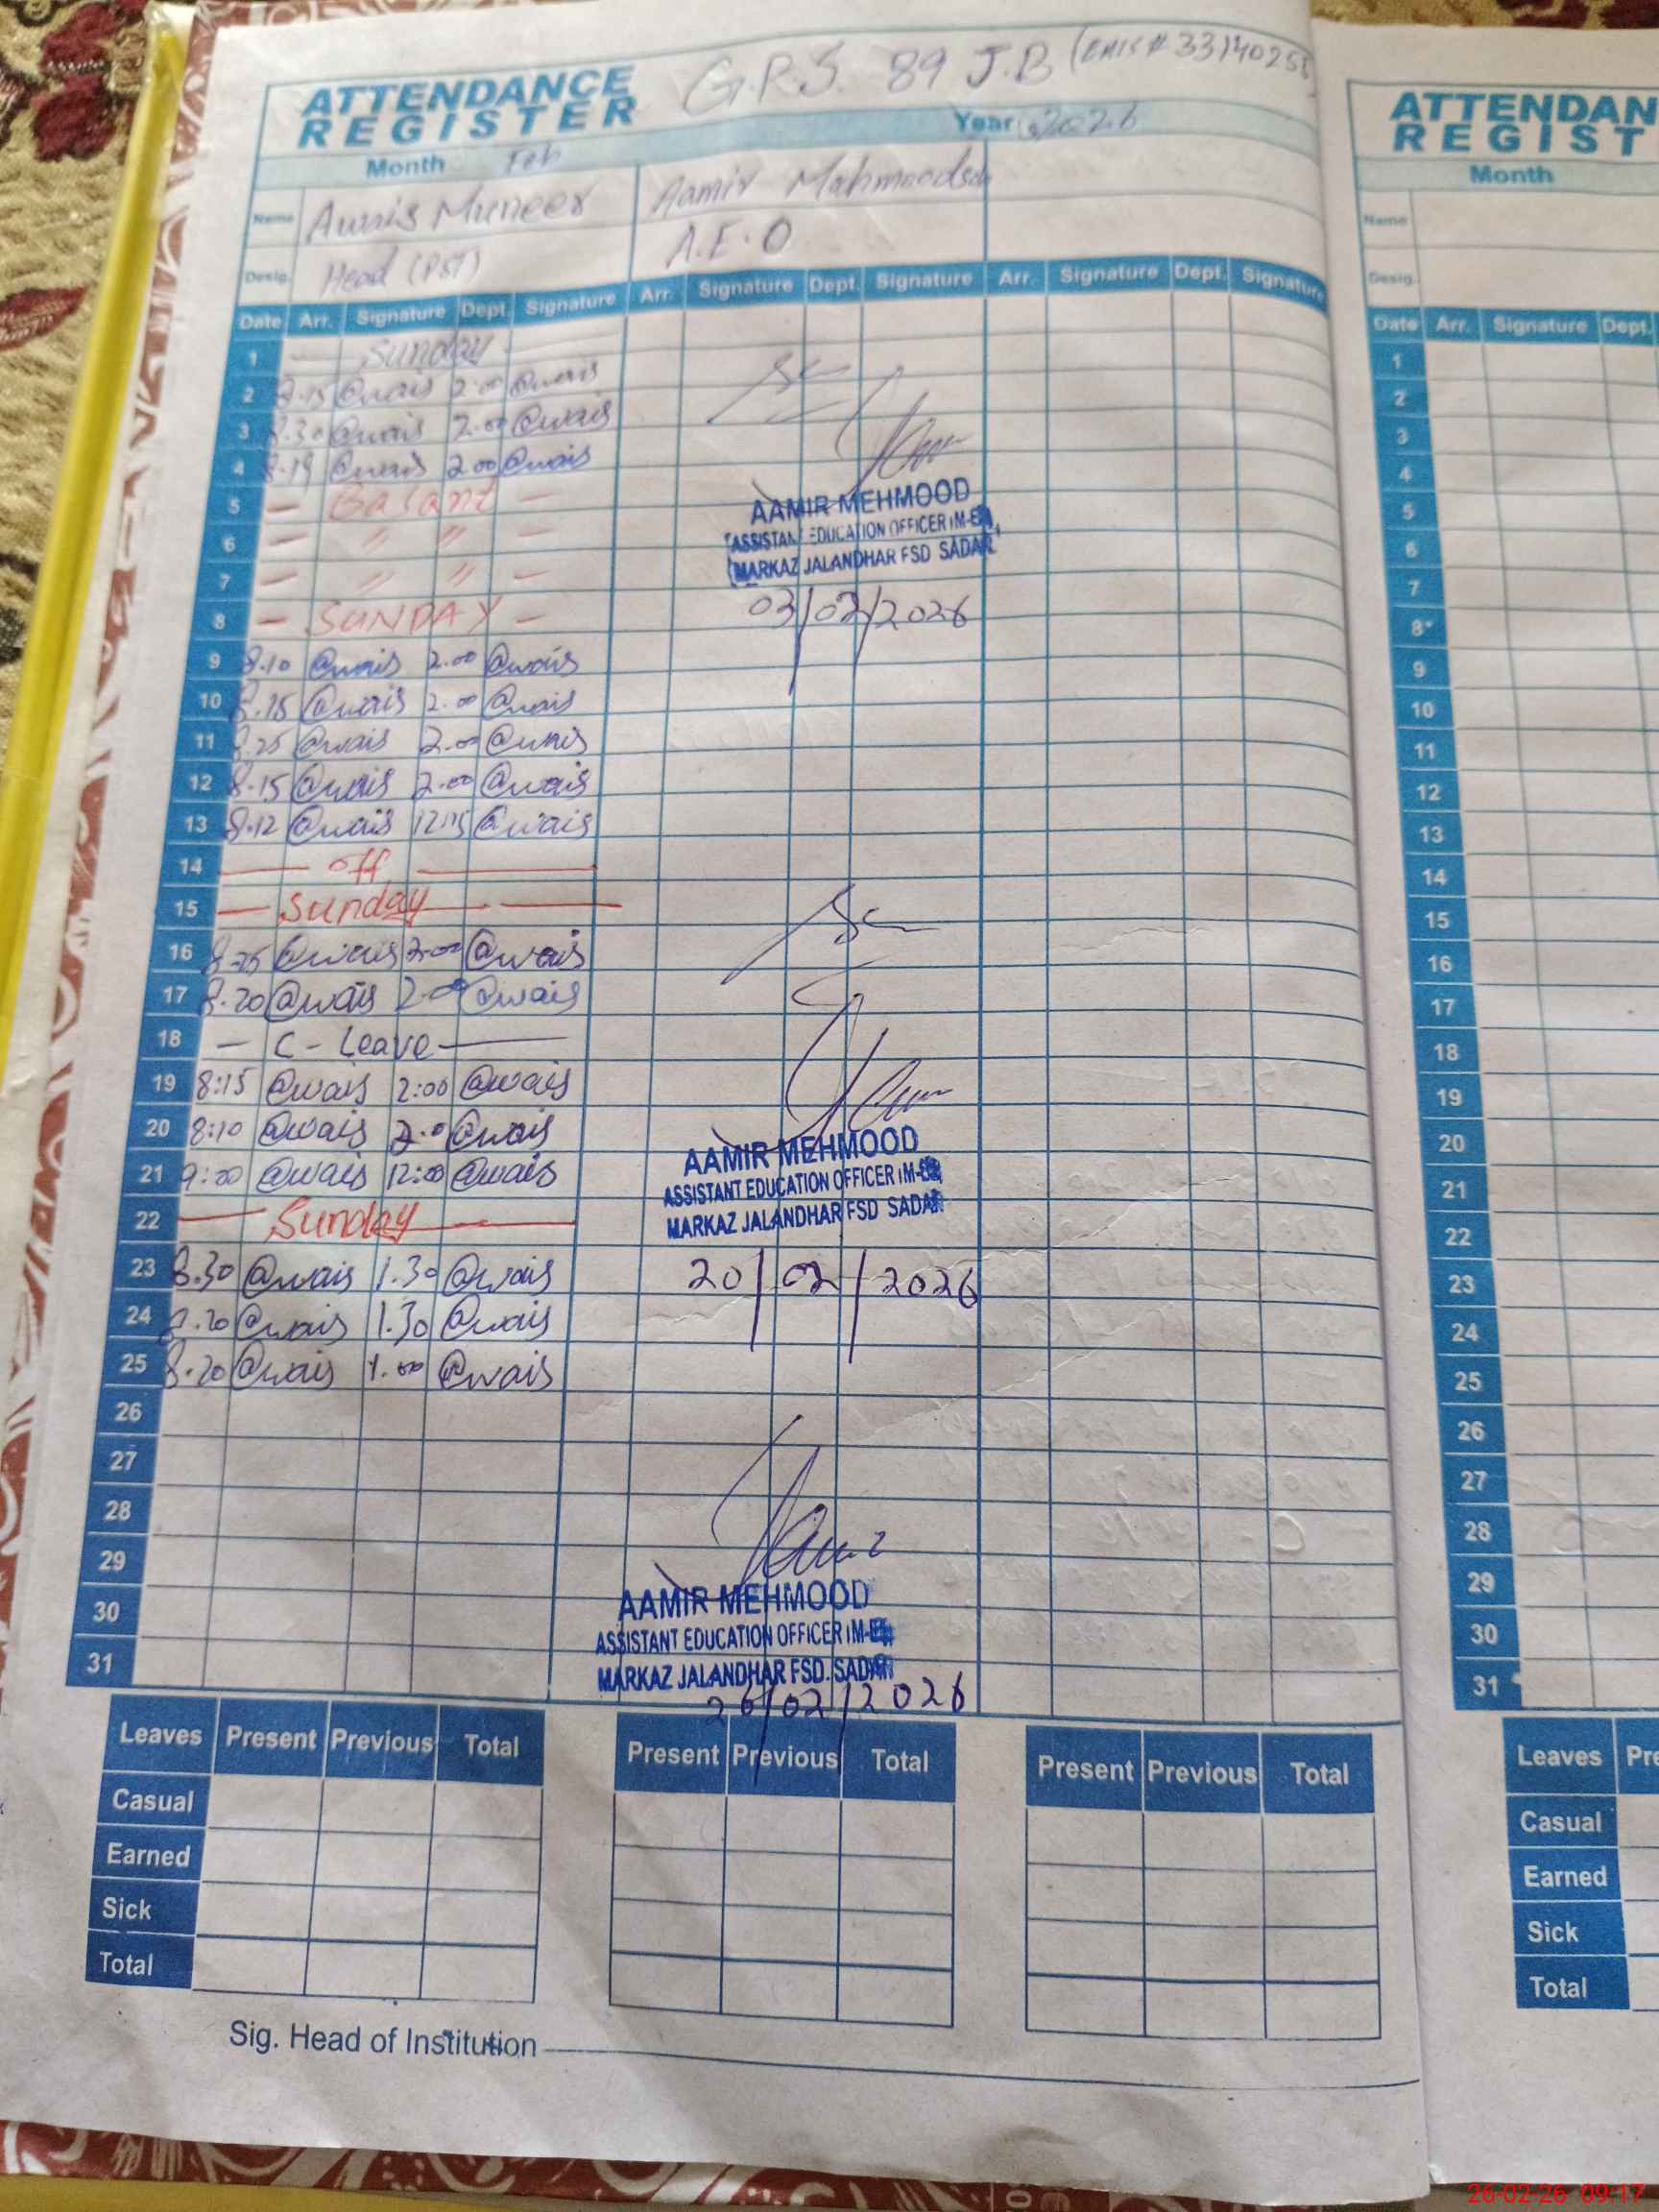 ATTENDANCE REGISTER G.P.S. 89 J.B (EMIS # 3314025
Month Feb Year 2026
Name Awais Muneer Aamir Mahmood
Desig. Head (PST) A.E.O
Date Arr. Signature Dept. Signature Arr. Signature Dept. Signature Arr. Signature Dept. Signature
1 — Sunday
2 8.15 @wais 2.00 @wais
3 8.30 @wais 2.00 @wais
4 8.19 @wais 2.00 @wais
5 — Basant —
6 — " " —
7 — " " —
8 — SUNDAY —
9 8.10 @wais 2.00 @wais
10 8.15 @wais 2.00 @wais
11 8.25 @wais 2.00 @wais
12 8.15 @wais 2.00 @wais
13 8.12 @wais 12.15 @wais
14 — off —
15 — Sunday —
16 8.25 @wais 2.00 @wais
17 8.20 @wais 2.00 @wais
18 — C - Leave —
19 8:15 @wais 2:00 @wais
20 8:10 @wais 2.0 @wais
21 9:00 @wais 12:00 @wais
22 — Sunday —
23 8.30 @wais 1.30 @wais
24 8.20 @wais 1.30 @wais
25 8.20 @wais 1.00 @wais
26
27
28
29
30
31
AAMIR MEHMOOD
ASSISTANT EDUCATION OFFICER (M-EE)
MARKAZ JALANDHAR FSD SADAR
03/02/2026
AAMIR MEHMOOD
ASSISTANT EDUCATION OFFICER (M-EE)
MARKAZ JALANDHAR FSD SADAR
20/02/2026
AAMIR MEHMOOD
ASSISTANT EDUCATION OFFICER (M-EE)
MARKAZ JALANDHAR FSD. SADAR
26/02/2026
Leaves Present Previous Total Present Previous Total Present Previous Total
Casual
Earned
Sick
Total
Sig. Head of Institution
ATTENDAN
REGIST
Month
Name
Desig.
Date Arr. Signature Dept.
1
2
3
4
5
6
7
8
9
10
11
12
13
14
15
16
17
18
19
20
21
22
23
24
25
26
27
28
29
30
31
Leaves Pre
Casual
Earned
Sick
Total
26-02-26 09:17